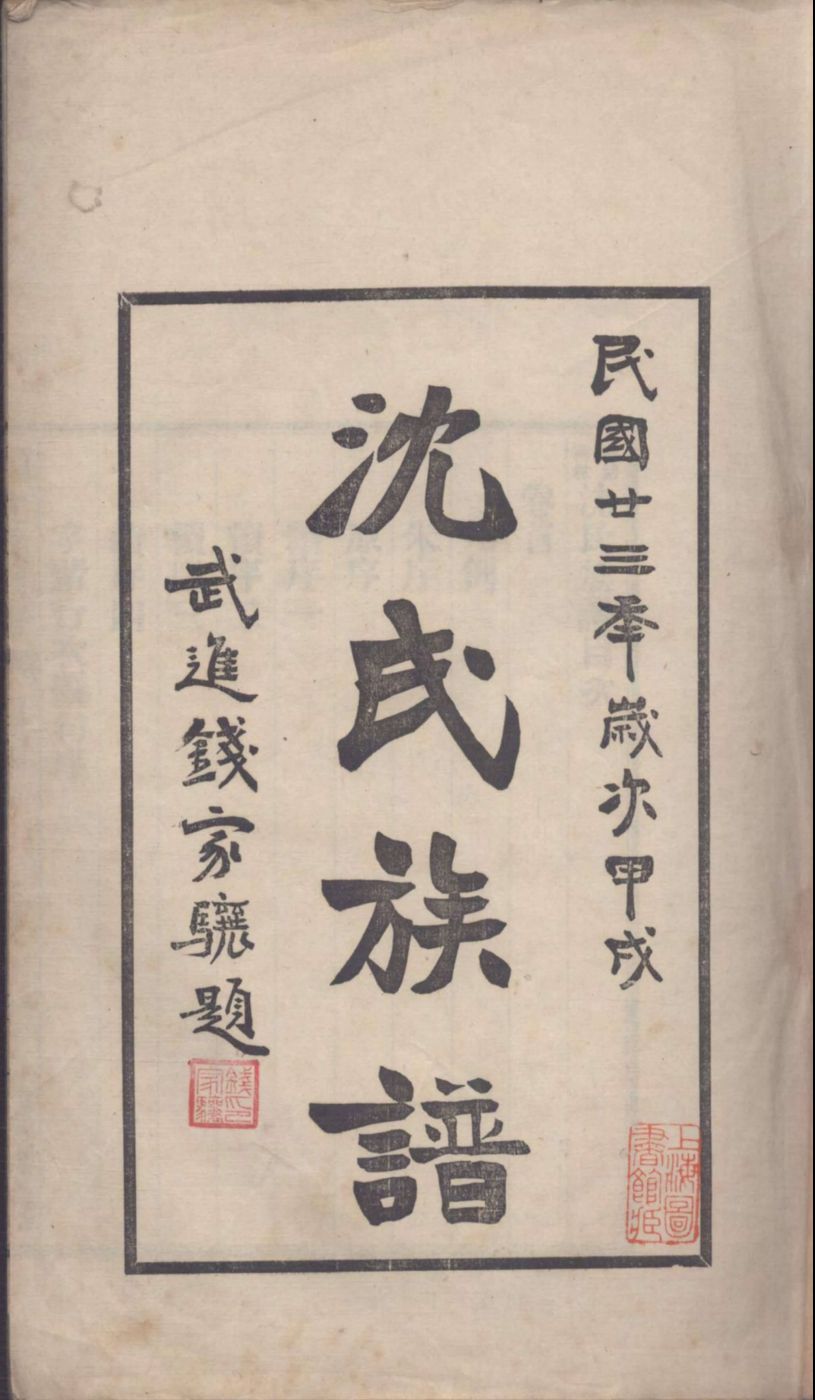 民國廿三年歲次甲戌
沈氏族譜
武進錢家驤題
錢印
家驤
上海圖
書館臧